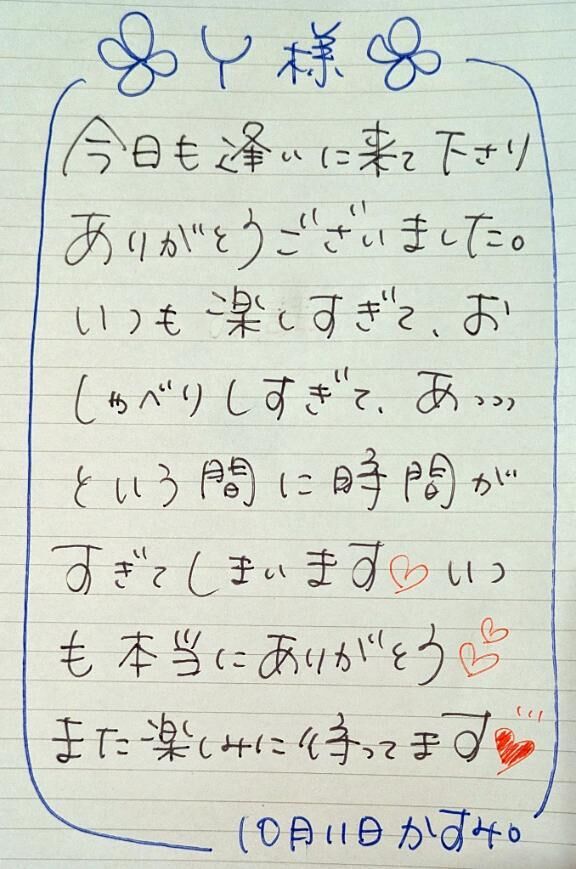 Y様
今日も逢いに来て下さり
ありがとうございました。
いつも楽しすぎて、お
しゃべりしすぎて、あっっっ
という間に時間が
すぎてしまいます♡いつ
も本当にありがとう♡♡
また楽しみに待ってます♥
10月11日かすみ。